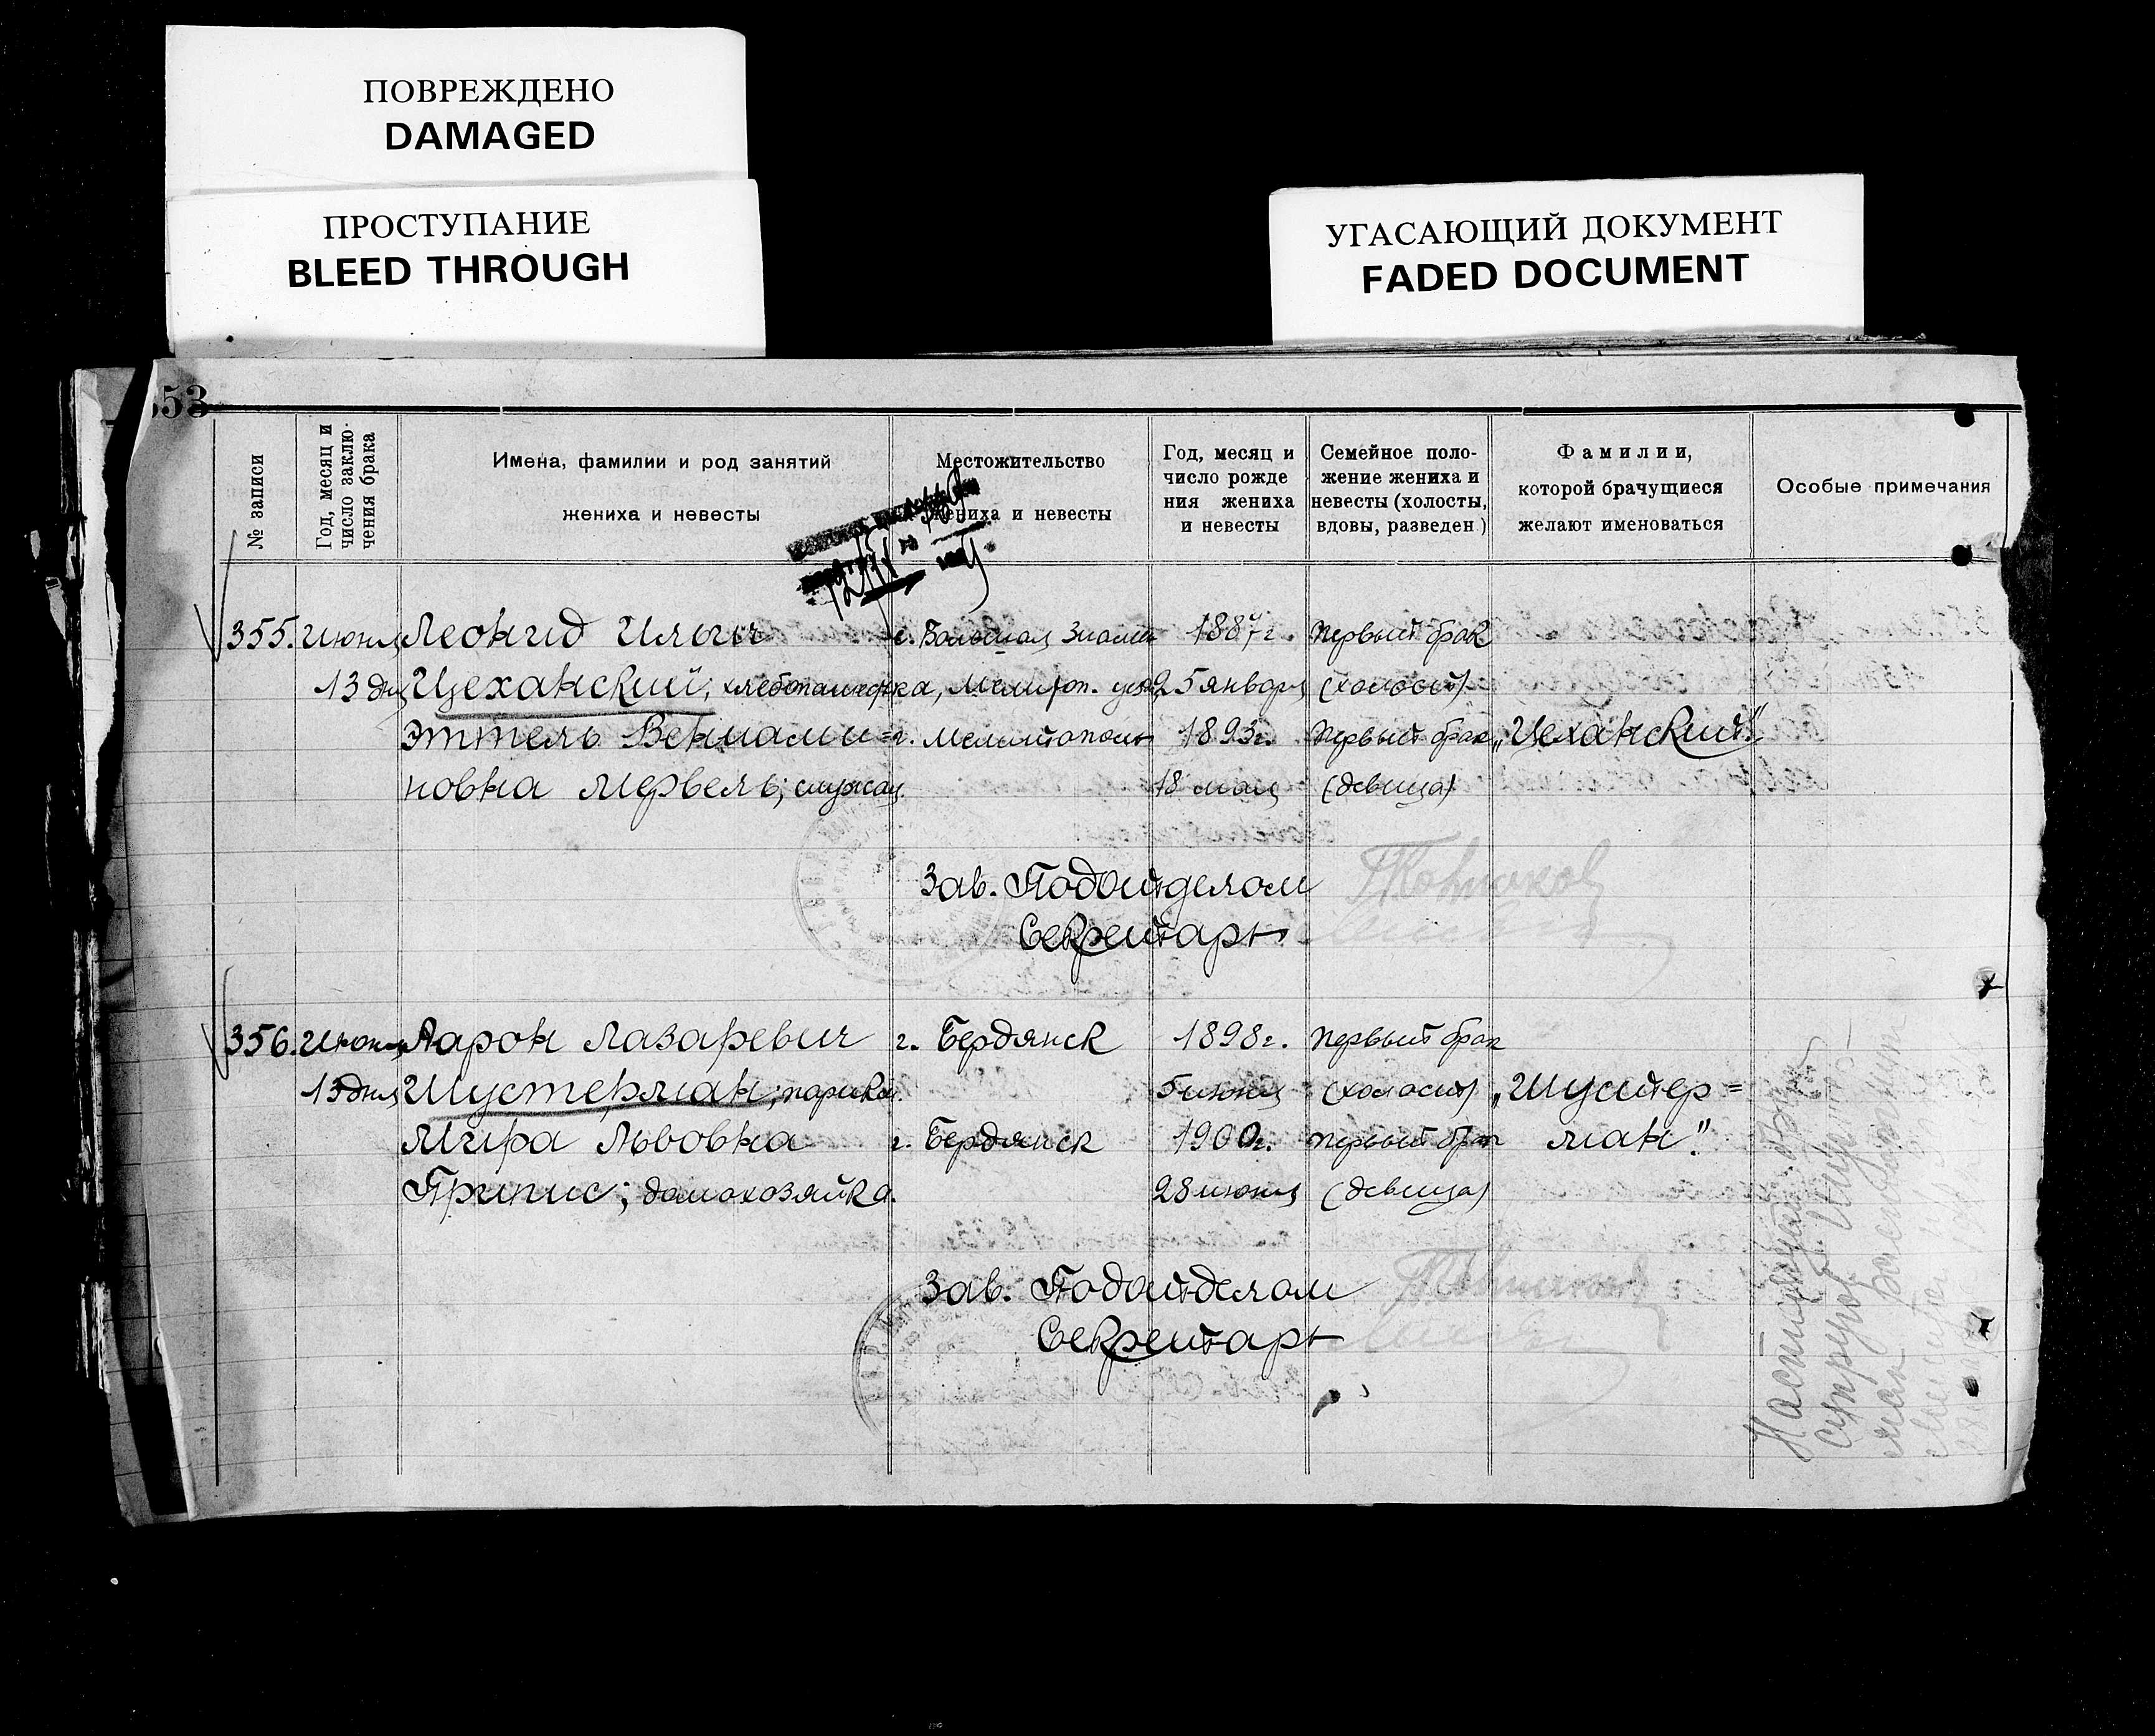 ПОВРЕЖДЕНО
DAMAGED
ПРОСТУПАНИЕ
BLEED THROUGH
УГАСАЮЩИЙ ДОКУМЕНТ
FADED DOCUMENT
53
№ записи
Год, месяц и
число заклю-
чения брака
Имена, фамилии и род занятий
жениха и невесты
Местожительство
жениха и невесты
Год, месяц и
число рожде
ния жениха
и невесты
Семейное поло-
жение жениха и
невесты (холосты,
вдовы, разведен.)
Фамилии,
которой брачущиеся
желают именоваться
Особые примечания
355. Июня Леонид Ильич с. Большая Знамен 1887г. Первый брак
13 дня Цеханский; ка, Мелитоп. уез. 25 января (холост)
Эттель Вениами= г. Мелитополь 1893г. Первый брак „Цеханский".
новна Мервель; служащ. 18 мая (девица)
Зав. Подотделом
Секретарь
356. Июня Аарон Лазаревич г. Бердянск 1898г. Первый брак
13 дня Шустерман; парикм. 5 июня (холост) „Шустер=
Мира Львовна г. Бердянск 1900г. Первый брак ман".
Припис; домохозяйка. 28 июня (девица)
Зав. Подотделом
Секретарь